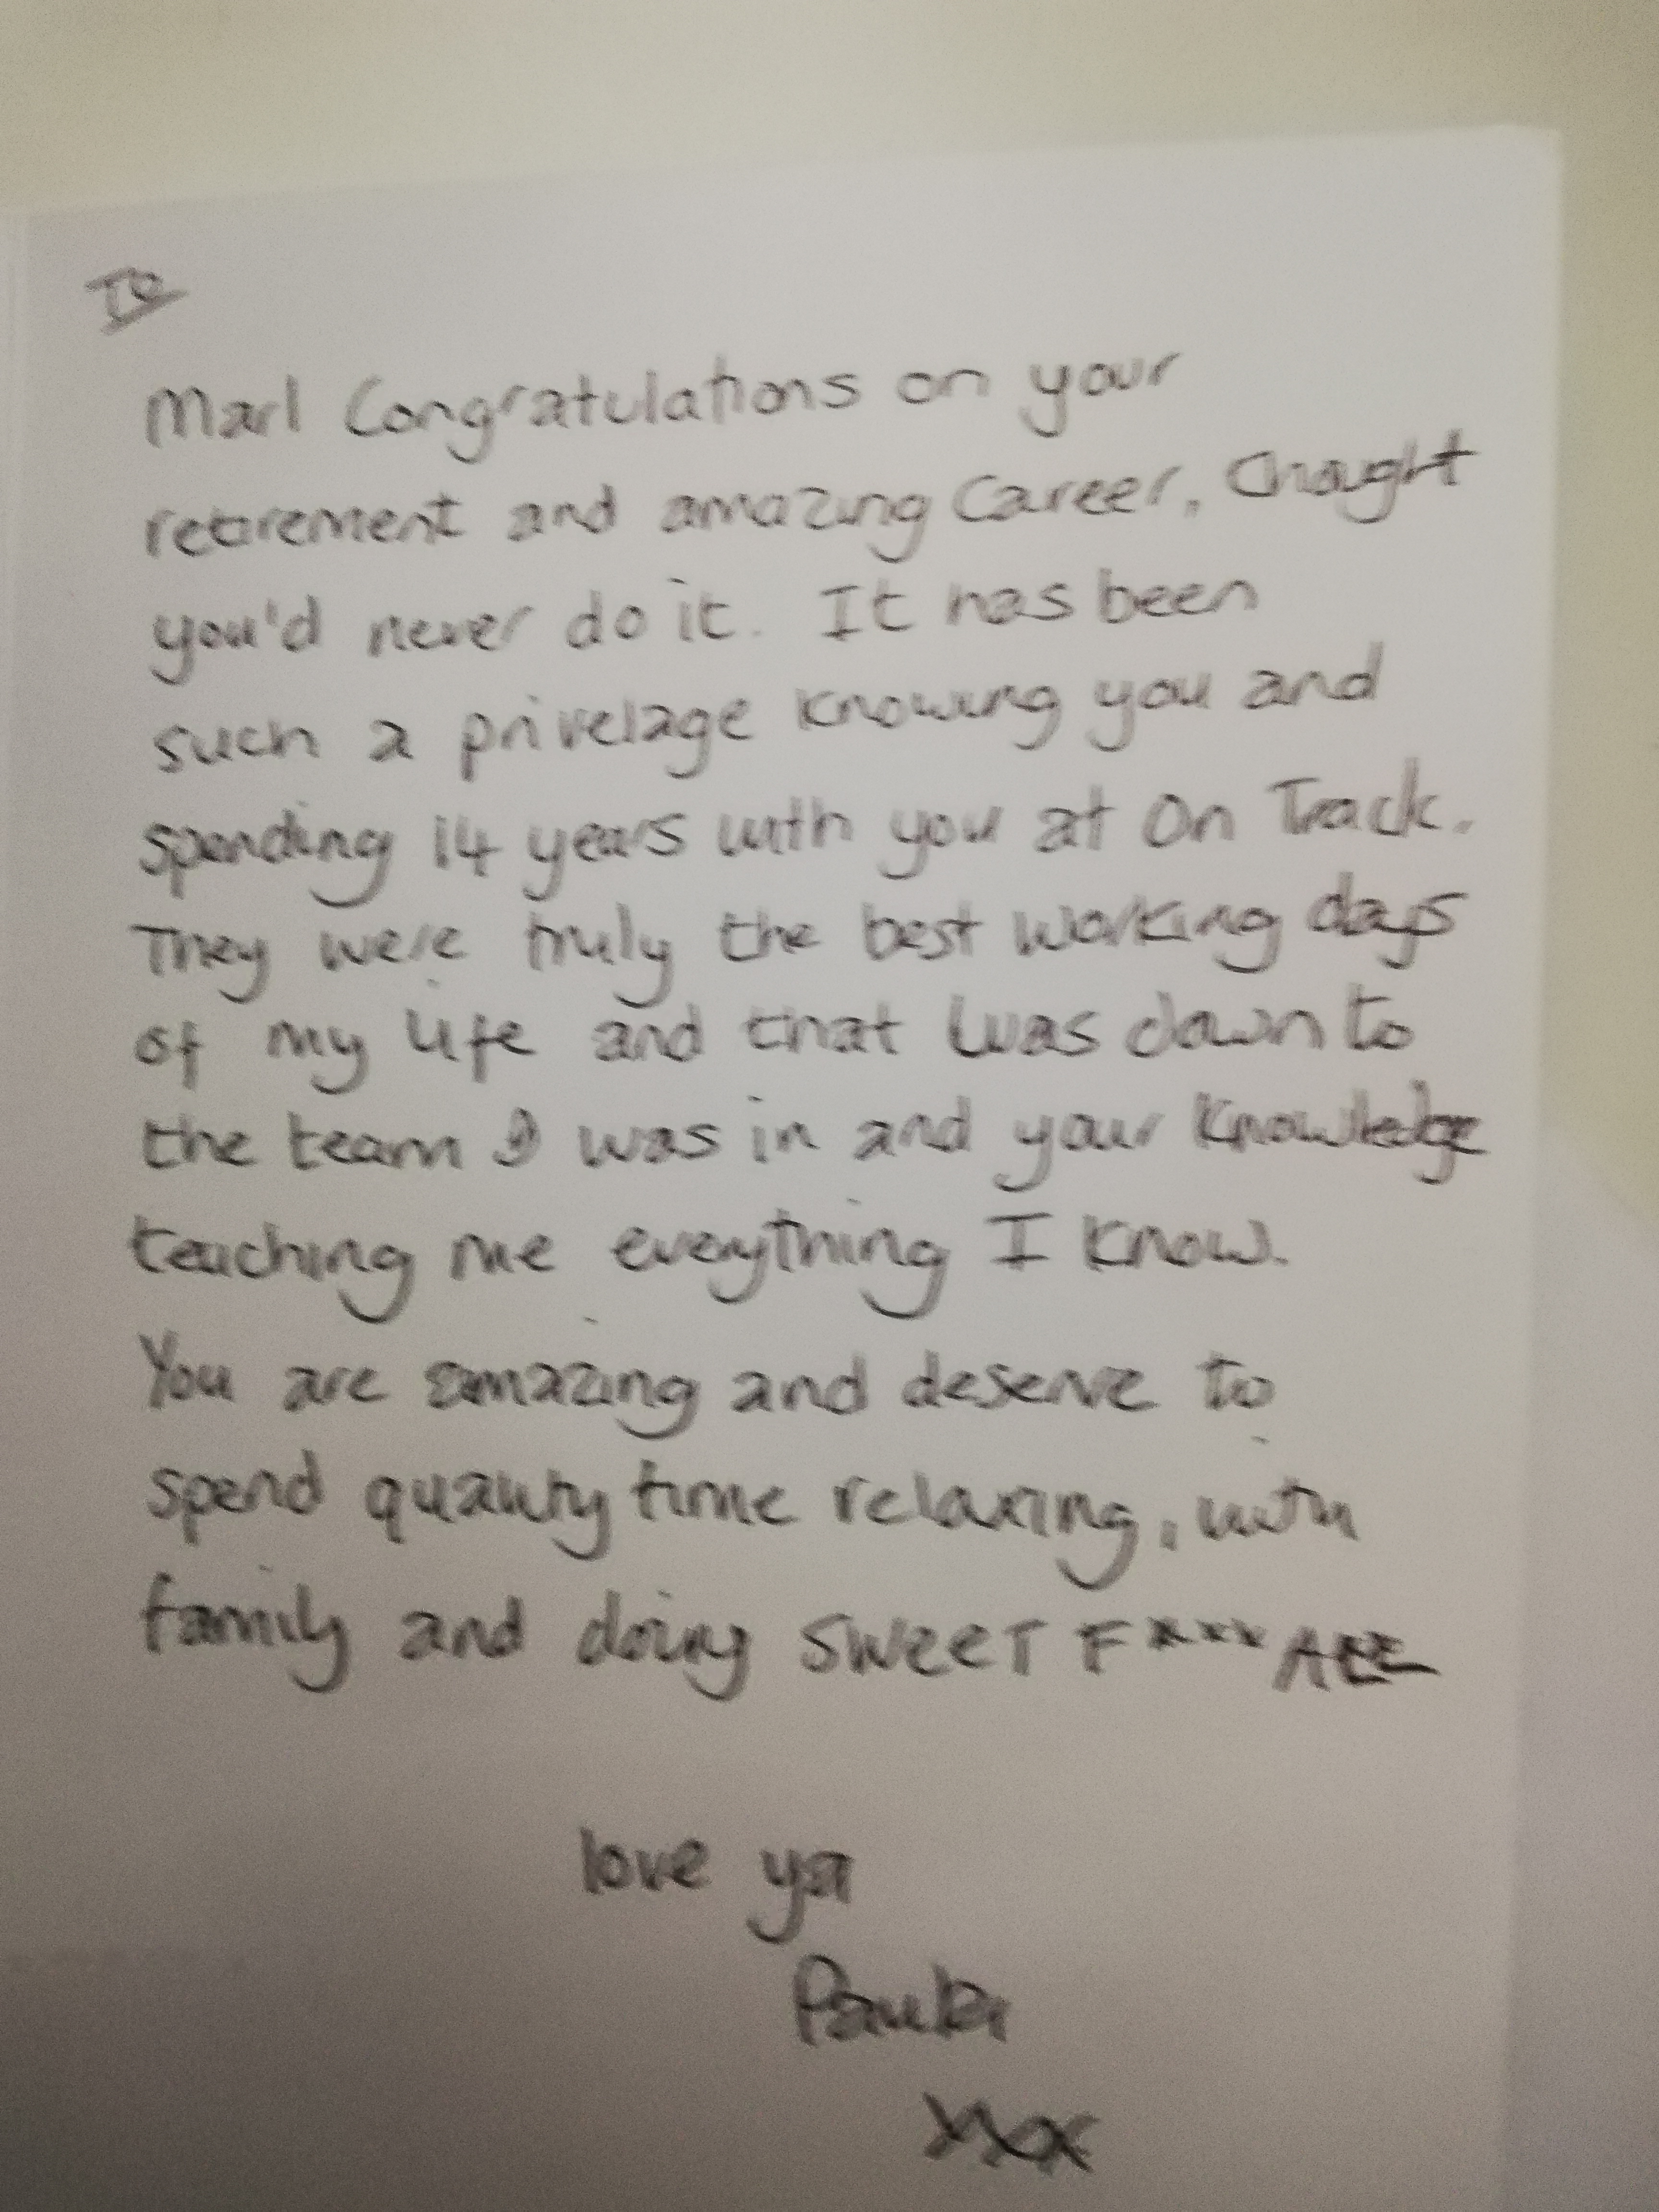 To
Marl Congratulations on your
retirement and amazing Career, thought
you'd never do it. It has been
such a privelage knowing you and
spending 14 years with you at On Track.
They were truly the best working days
of my life and that was down to
the team I was in and your knowledge
teaching me everything I know.
You are amazing and deserve to
spend quality time relaxing, with
family and doing SWEET F*** ALL
love ya
Paula
xxx